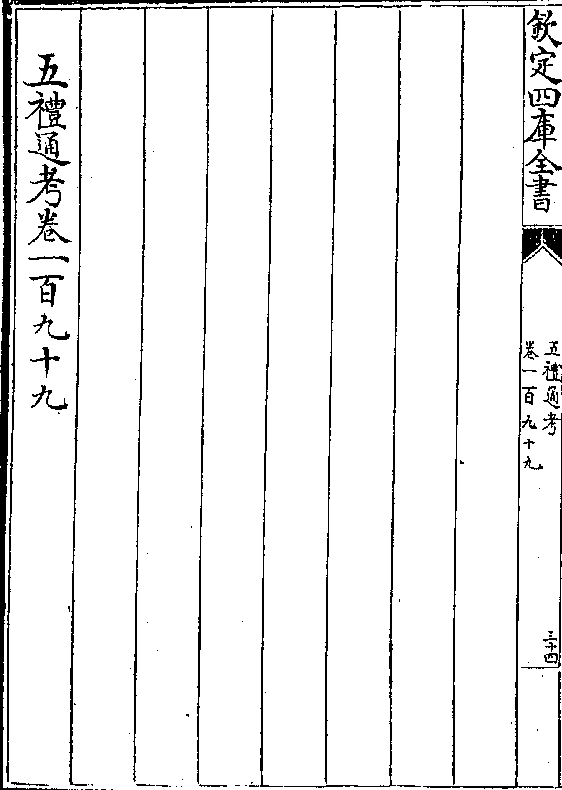 欽定四庫全書
五禮通考
卷一百九十九
三十四
五禮通考卷一百九十九